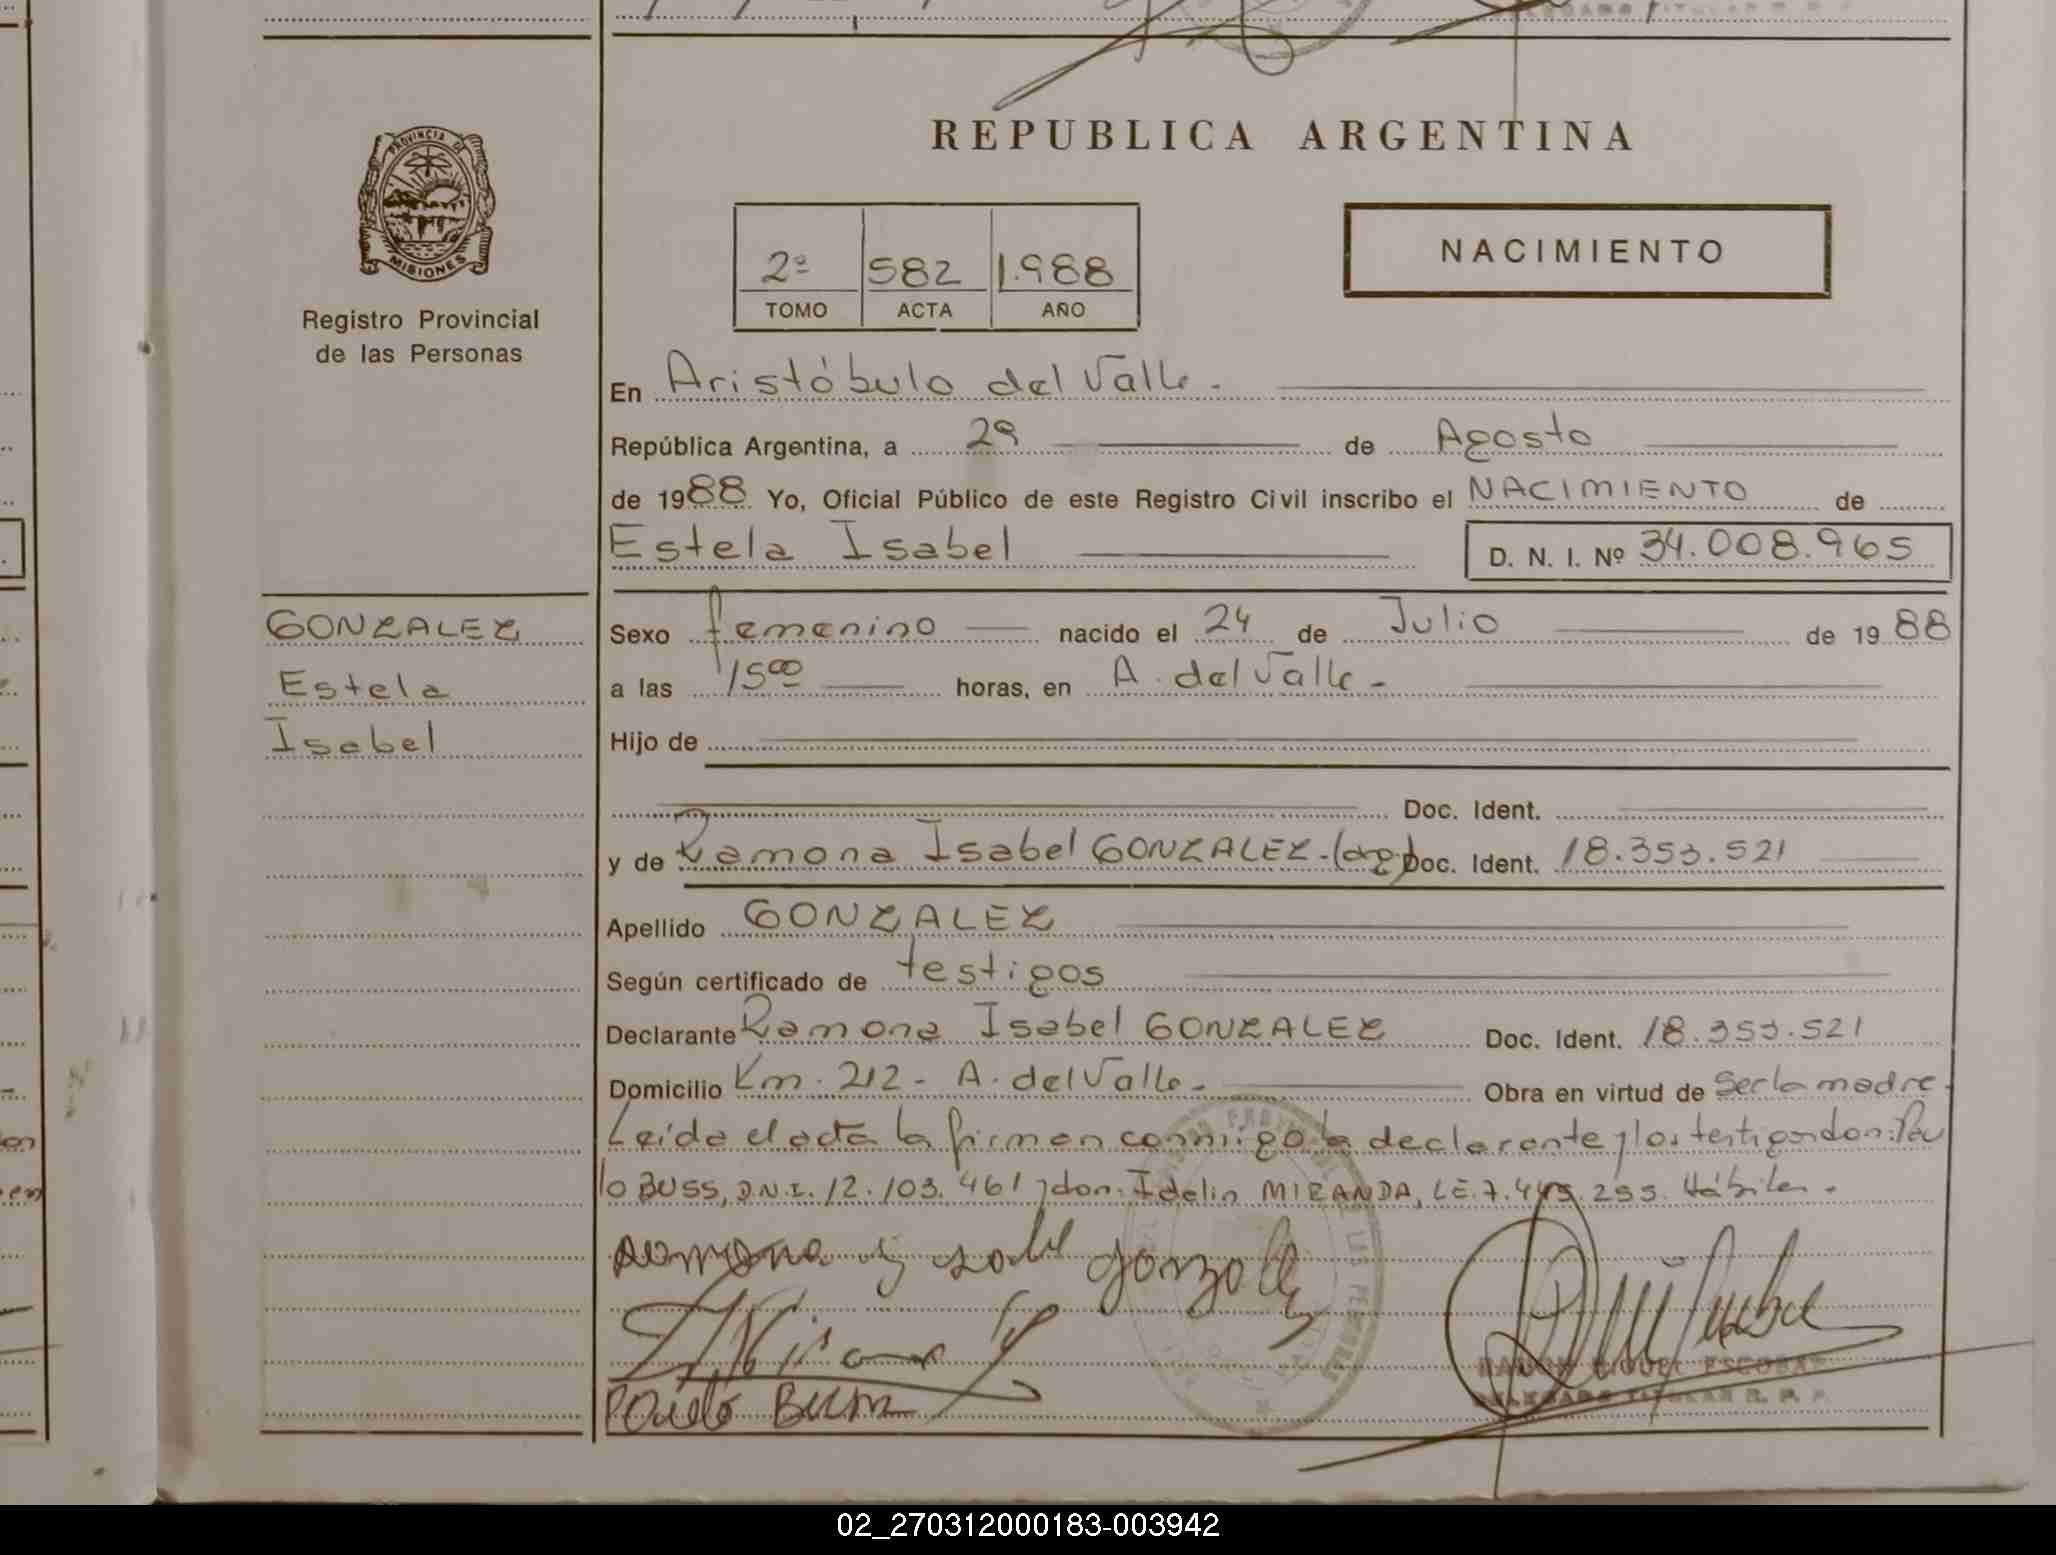 REPUBLICA ARGENTINA
PROVINCIA DE
MISIONES
Registro Provincial
de las Personas
2º 582 1.988
TOMO ACTA AÑO
NACIMIENTO
En Aristóbulo del Valle.
República Argentina, a 29 de Agosto
de 1988 Yo, Oficial Público de este Registro Civil inscribo el NACIMIENTO de
Estela Isabel D. N. I. Nº 34.008.965
GONZALEZ
Estela
Isabel
Sexo femenino nacido el 24 de Julio de 1988
a las 15 00 horas, en A. del Valle -
Hijo de
Doc. Ident.
y de Ramona Isabel GONZALEZ.-(arg) Doc. Ident. 18.353.521
Apellido GONZALEZ
Según certificado de testigos
Declarante Ramona Isabel GONZALEZ Doc. Ident. 18.353.521
Domicilio Km. 212 - A. del Valle - Obra en virtud de ser la madre.
Leída el acta la firman conmigo la declarante y los testigos don: Pau
lo BUSS, D.N.I. 12.103.461 y don: Idelin MIRANDA, L.E. 7. 255. Hábiles.
ramona ysabel gonzalez
RAMON MIGUEL ESCOBAR
DELEGADO TITULAR R. P. P.
02_270312000183-003942